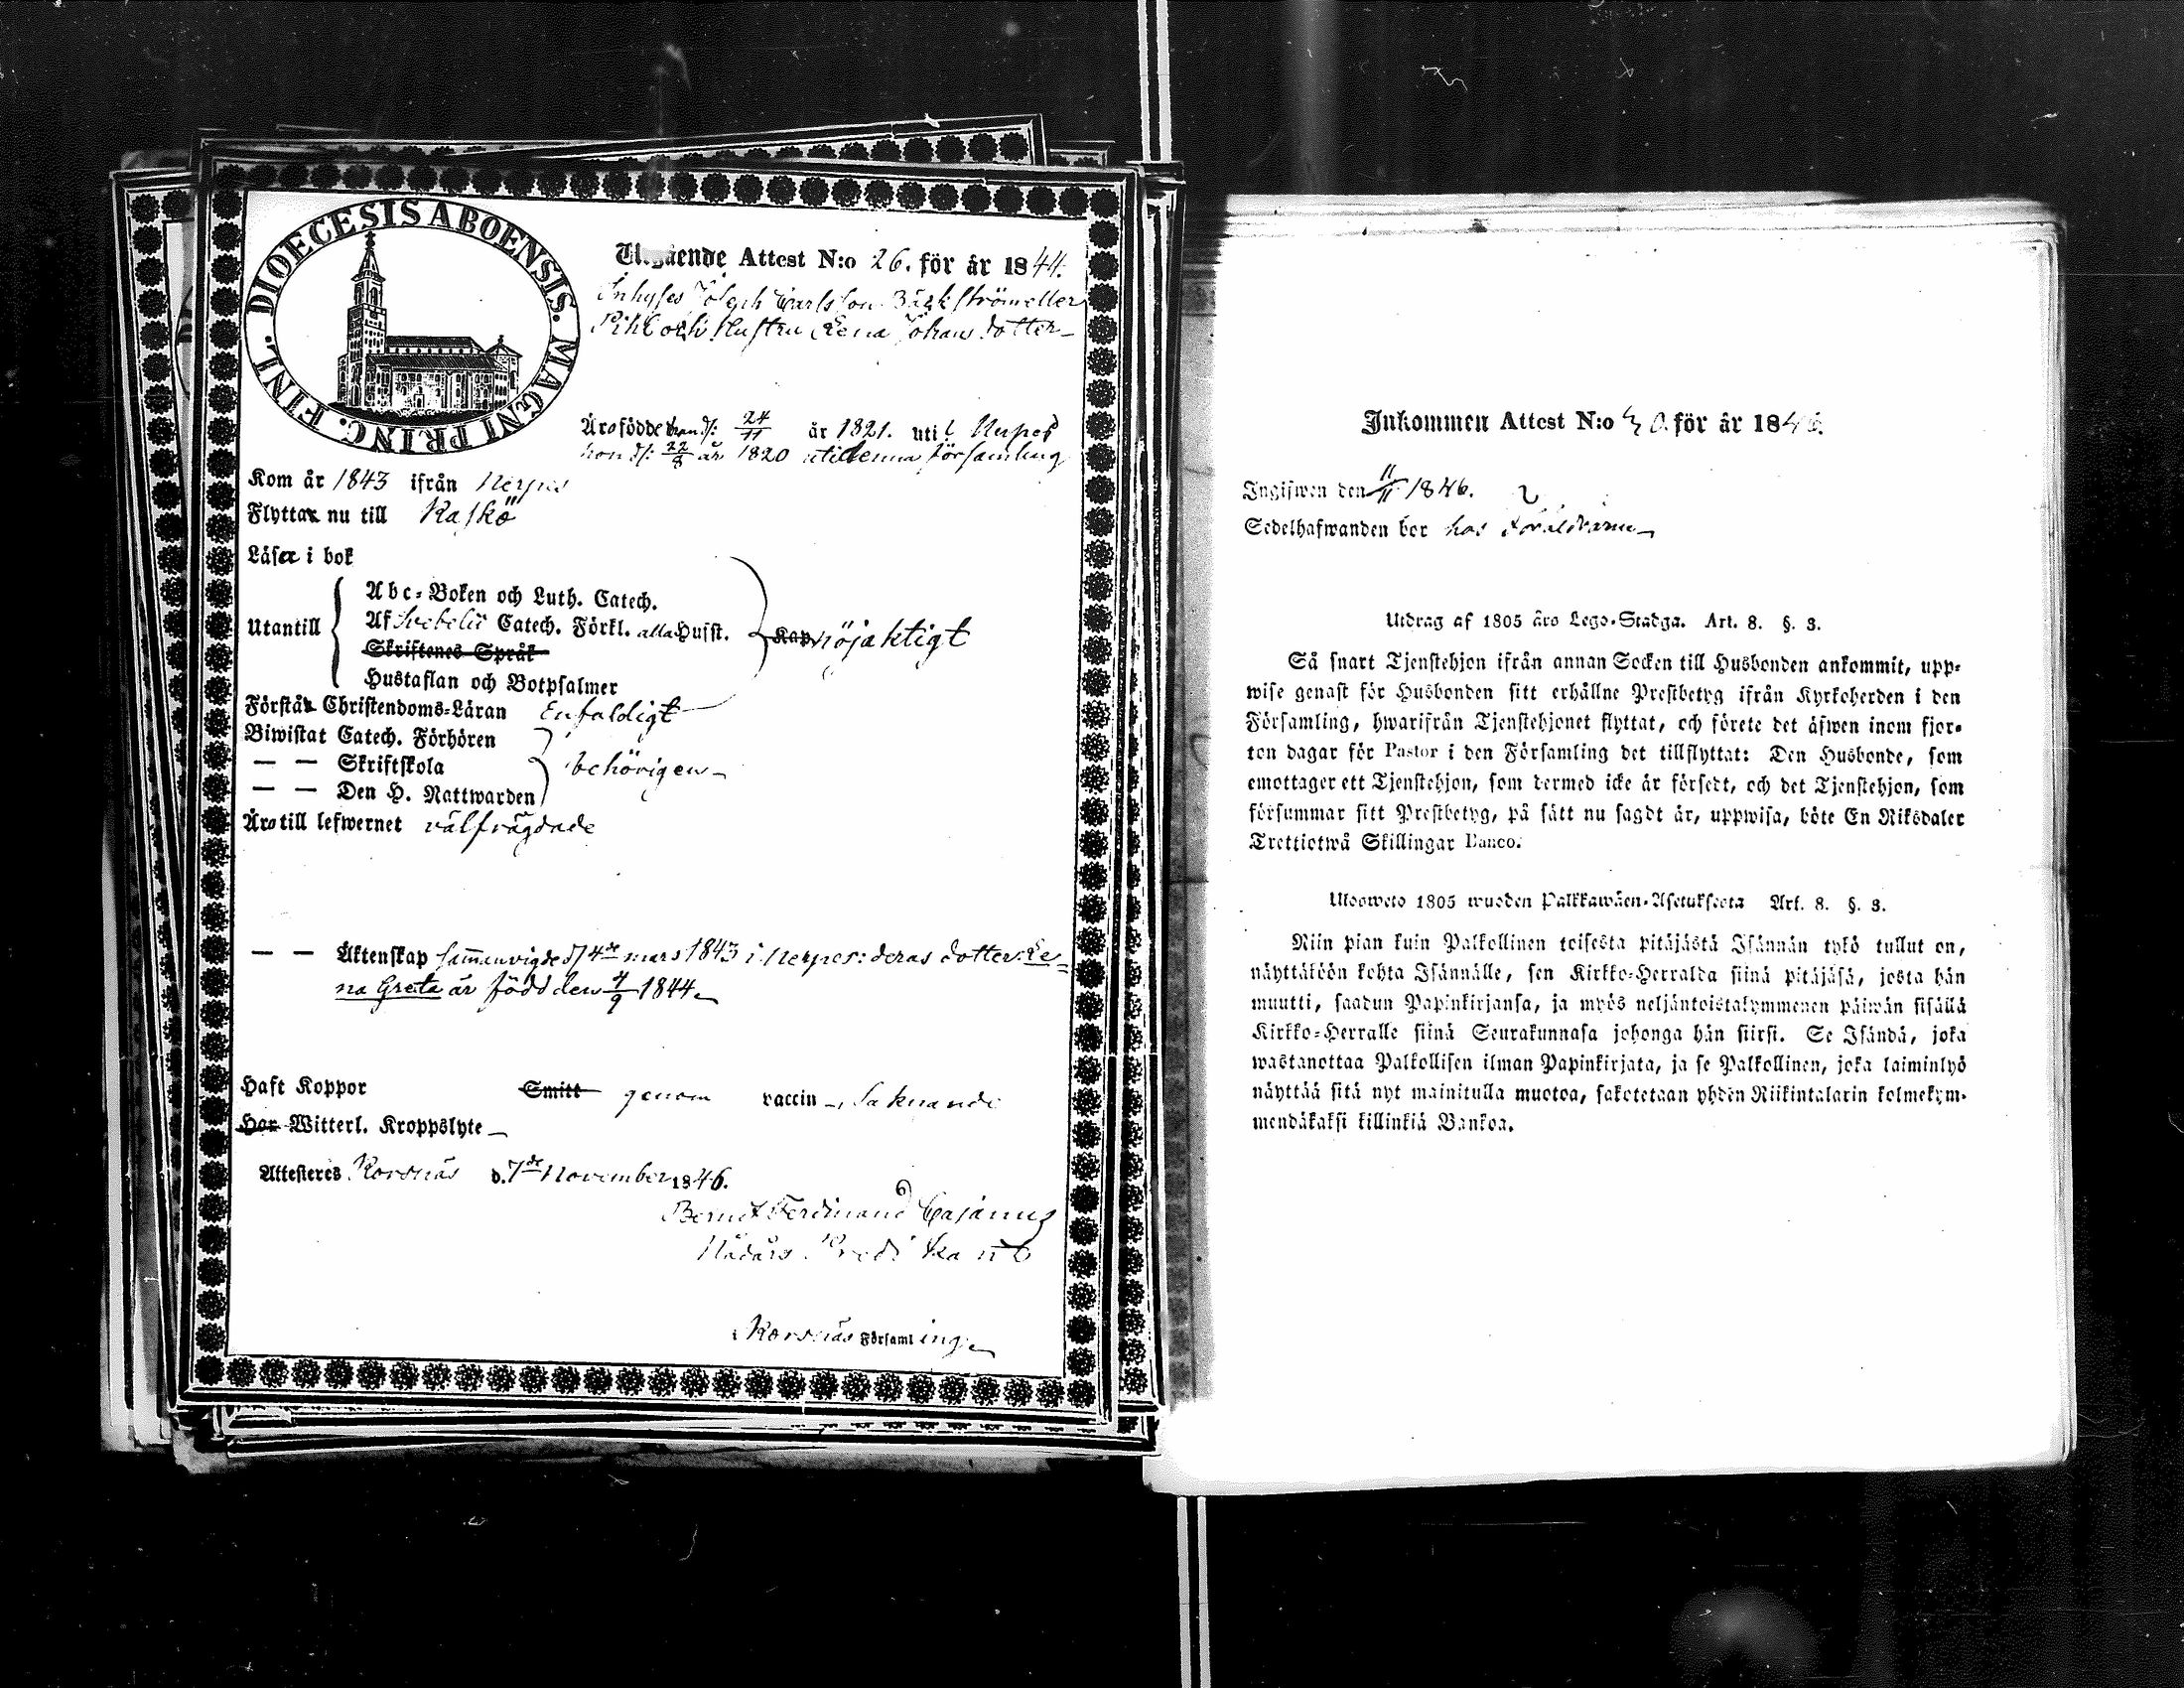 DIOECESIS ABOENSIS. MAGNI PRINC. FINL.
Utgående Attest N:o 26. för år 1844.
Inhyses Joseph Carlsson Bäckström eller
Pihl och Hustru Lena Johans dotter
Äro födde han d: 24/11 år 1821. uti Nerpes
hon d: 22/8 år 1820 uti denna församling
Kom år 1843 ifrån Nerpes
Flyttar nu till Kaskö
Läsa i bok
Utantill
Abc-Boken och Luth. Catech.
Af Svebelii Catech. Förkl. alla Hufst.
Skriftenes Språk
Hustaflan och Botpsalmer
Kap nöjaktigt
Förstå Christendoms-Läran Enfaldigt
Biwistat Catech. Förhören
— — Skriftskola
— — Den H. Nattwarden
behörigen
Äro till lefwernet välfrägdade
— — Äktenskap sammanvigde d 4de mars 1843 i Nerpes: deras dotter: Le=
na Greta är född den 4/9 1844
Haft Koppor Smitt genom vaccin Saknande
Har Witterl. Kroppslyte
Attesteres Korsnäs d. 7de November 1846.
Bernt Ferdinand Cajanus
Nådårs Predikant
Korsnäs Församling
Inkommen Attest N:o 30 för år 1846.
Ingifwen den 11/11 1846.
Sedelhafwanden bor hos Föräldrarne
Utdrag af 1805 års Lego-Stadga. Art. 8. §. 3.
Så snart Tjenstehjon ifrån annan Socken till Husbonden ankommit, upp-
wise genast för Husbonden sitt erhållne Prestbetyg ifrån Kyrkoherden i den
Församling, hwarifrån Tjenstehjonet flyttat, och förete det äfwen inom fjor-
ton dagar för Pastor i den Församling det tillflyttat: Den Husbonde, som
emottager ett Tjenstehjon, som dermed icke är försedt, och det Tjenstehjon, som
försummar sitt Prestbetyg, på sätt nu sagdt är, uppwisa, böte En Riksdaler
Trettiotwå Skillingar Banco.
Ulosweto 1805 wuoden Palkkawäen-Asetuksesta Art. 8. §. 3.
Niin pian kuin Palkollinen toisesta pitäjästä Isännän tykö tullut on,
näyttäköön kohta Isännälle, sen Kirkko-Herralda siinä pitäjäsä, josta hän
muutti, saadun Papinkirjansa, ja myös neljäntoistakymmenen päiwän sisällä
Kirkko-Herralle siinä Seurakunnasa johonga hän siirsi. Se Isändä, joka
wastanottaa Palkollisen ilman Papinkirjata, ja se Palkollinen, joka laiminlyö
näyttää sitä nyt mainitulla muotoa, sakotetaan yhden Riikintalarin kolmekym-
mendäkaksi killinkiä Bankoa.